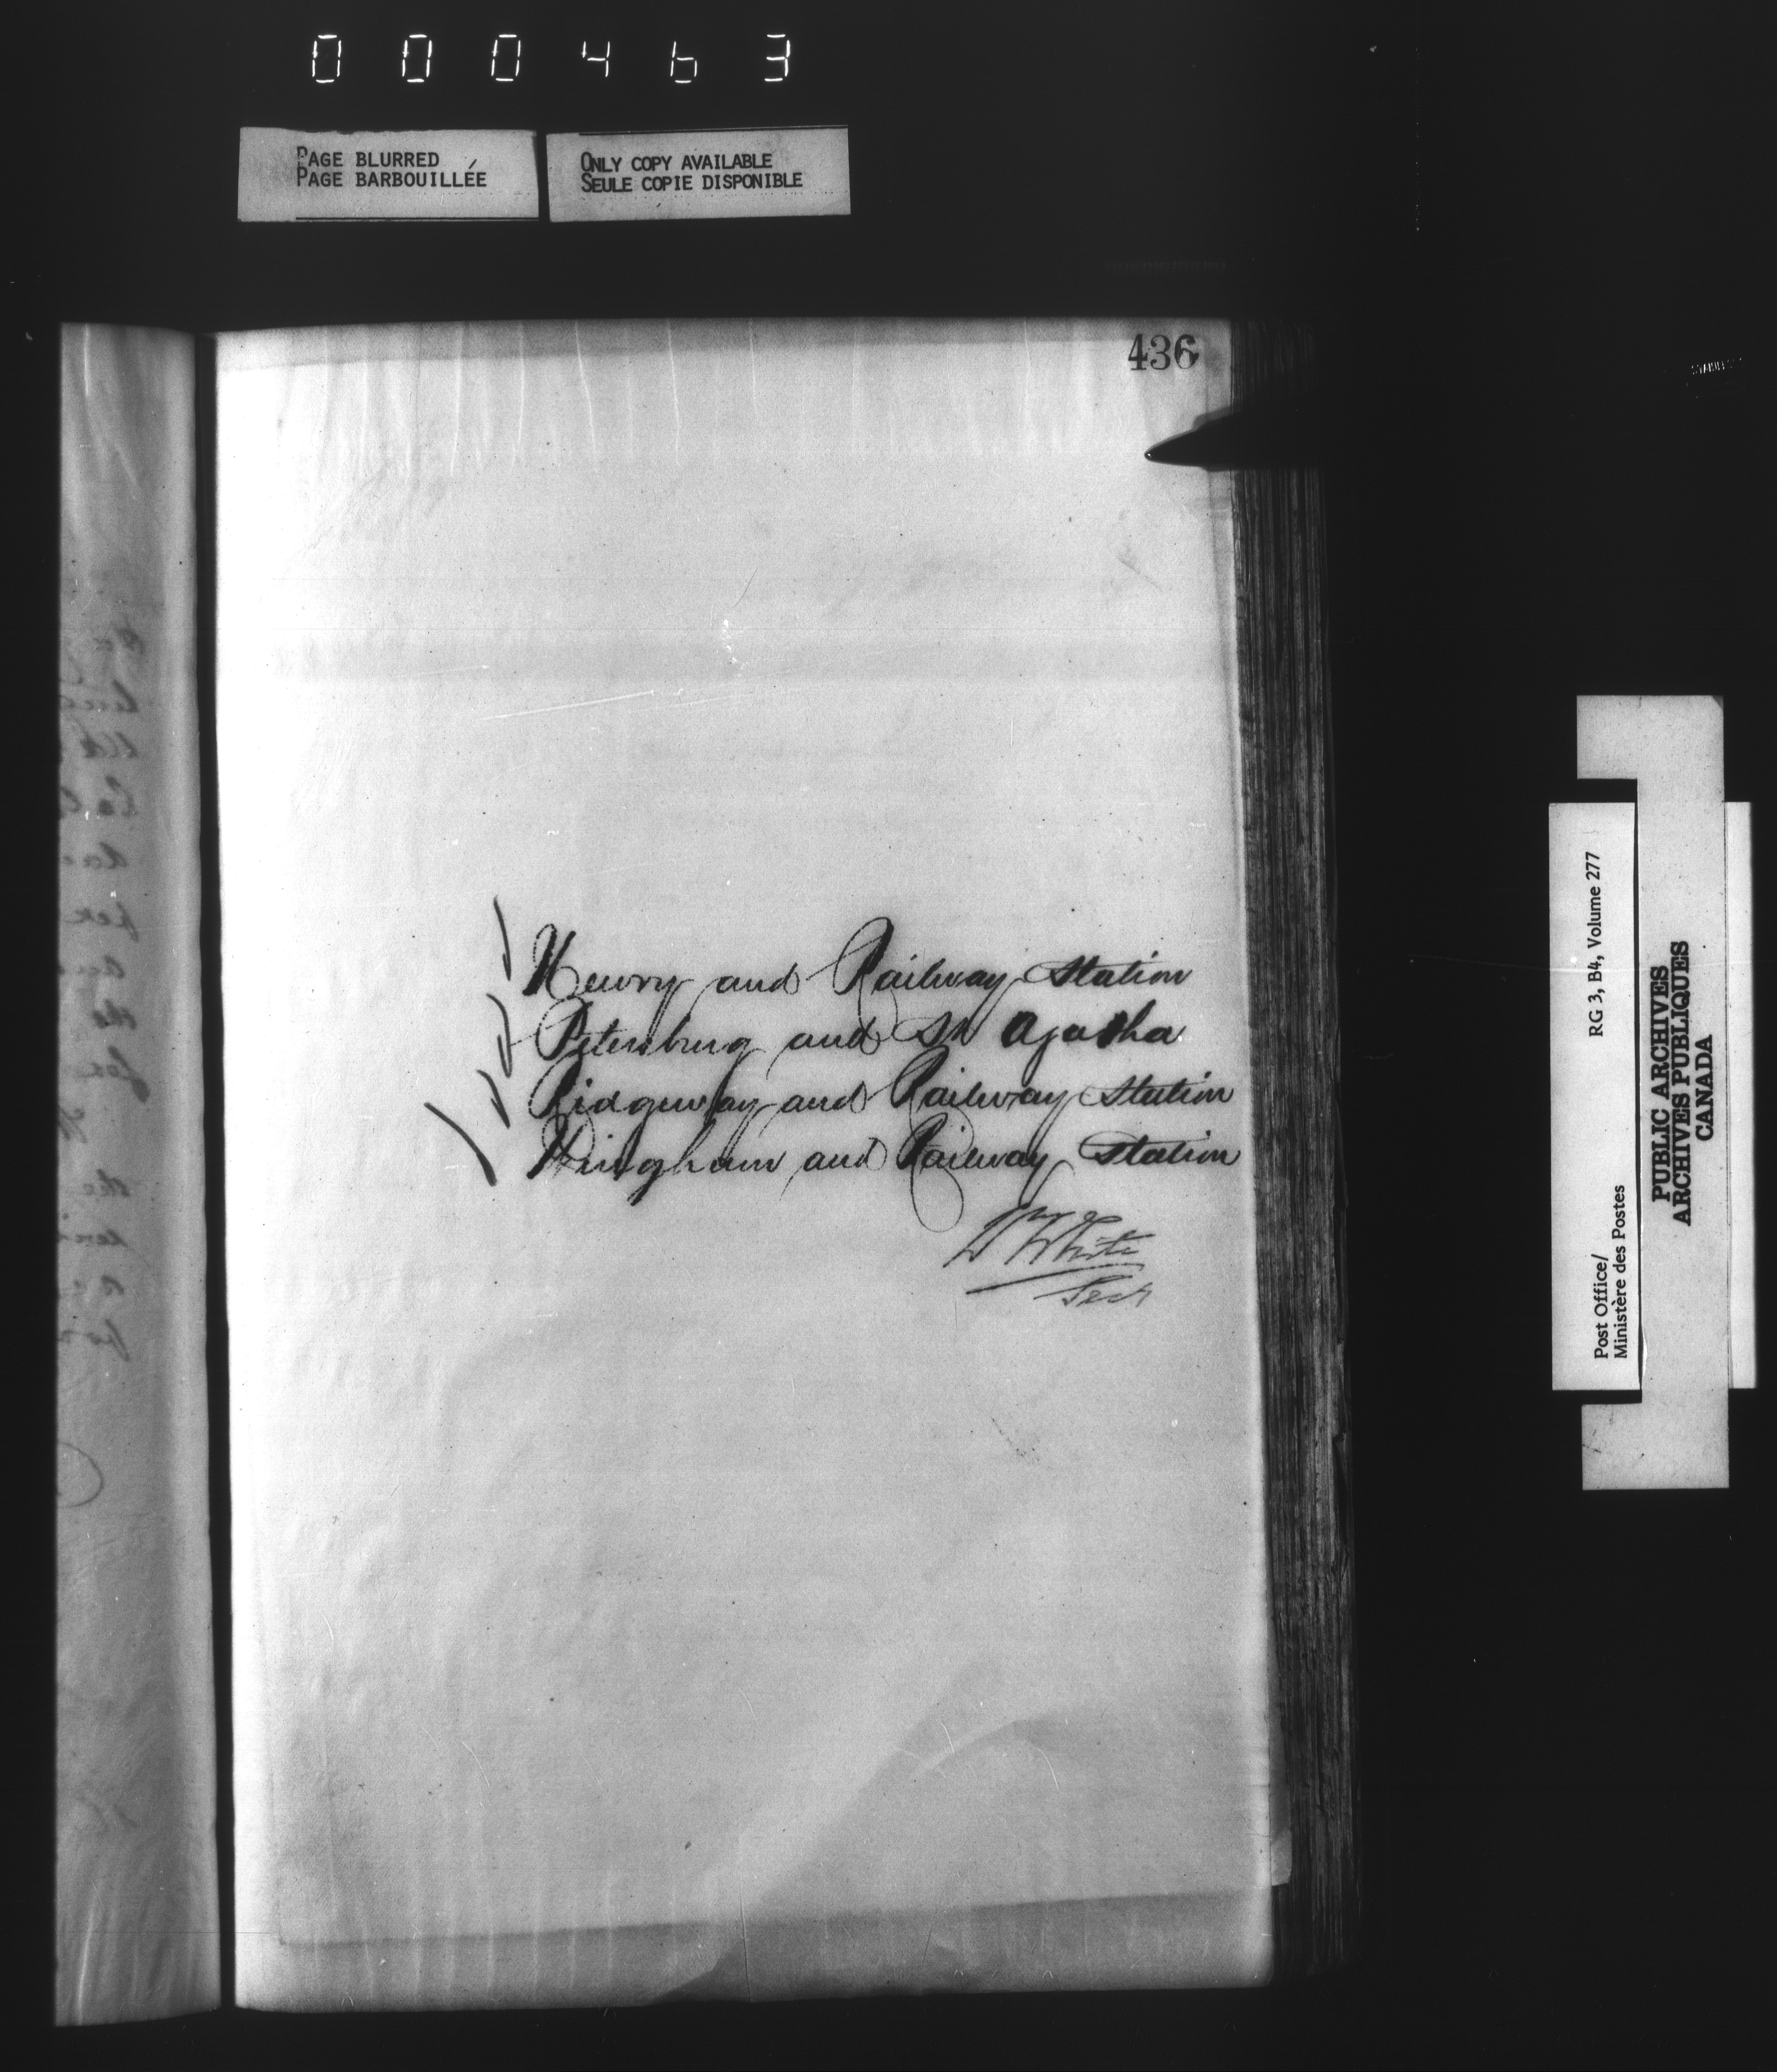 000463
PAGE BLURRED
PAGE BARBOUILLÉE
ONLY COPY AVAILABLE
SEULE COPIE DISPONIBLE
436
Newry and Railway Station
Petersburg and St Agatha
Ridgeway and Railway Station
Wingham and Railway Station
Wm White
Secy
Post Office/
Ministère des Postes
RG 3, B4, Volume 277
PUBLIC ARCHIVES
ARCHIVES PUBLIQUES
CANADA